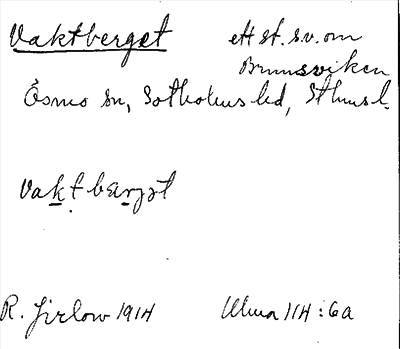 Vaktberget ett st. s.v. om
Brunnsviken
Ösmo sn, Sotholms hd, Sthms l.
Vaktbärjət
R. Jirlow 1914 Ulma 114:6a